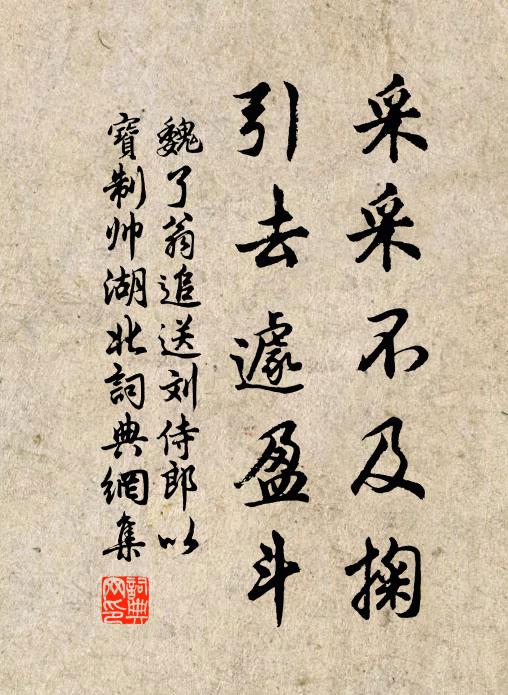 采采不及掬
引去遽盈斗
魏了翁追送刘侍郎以
寶制帅湖北詞典網集
詞典网印